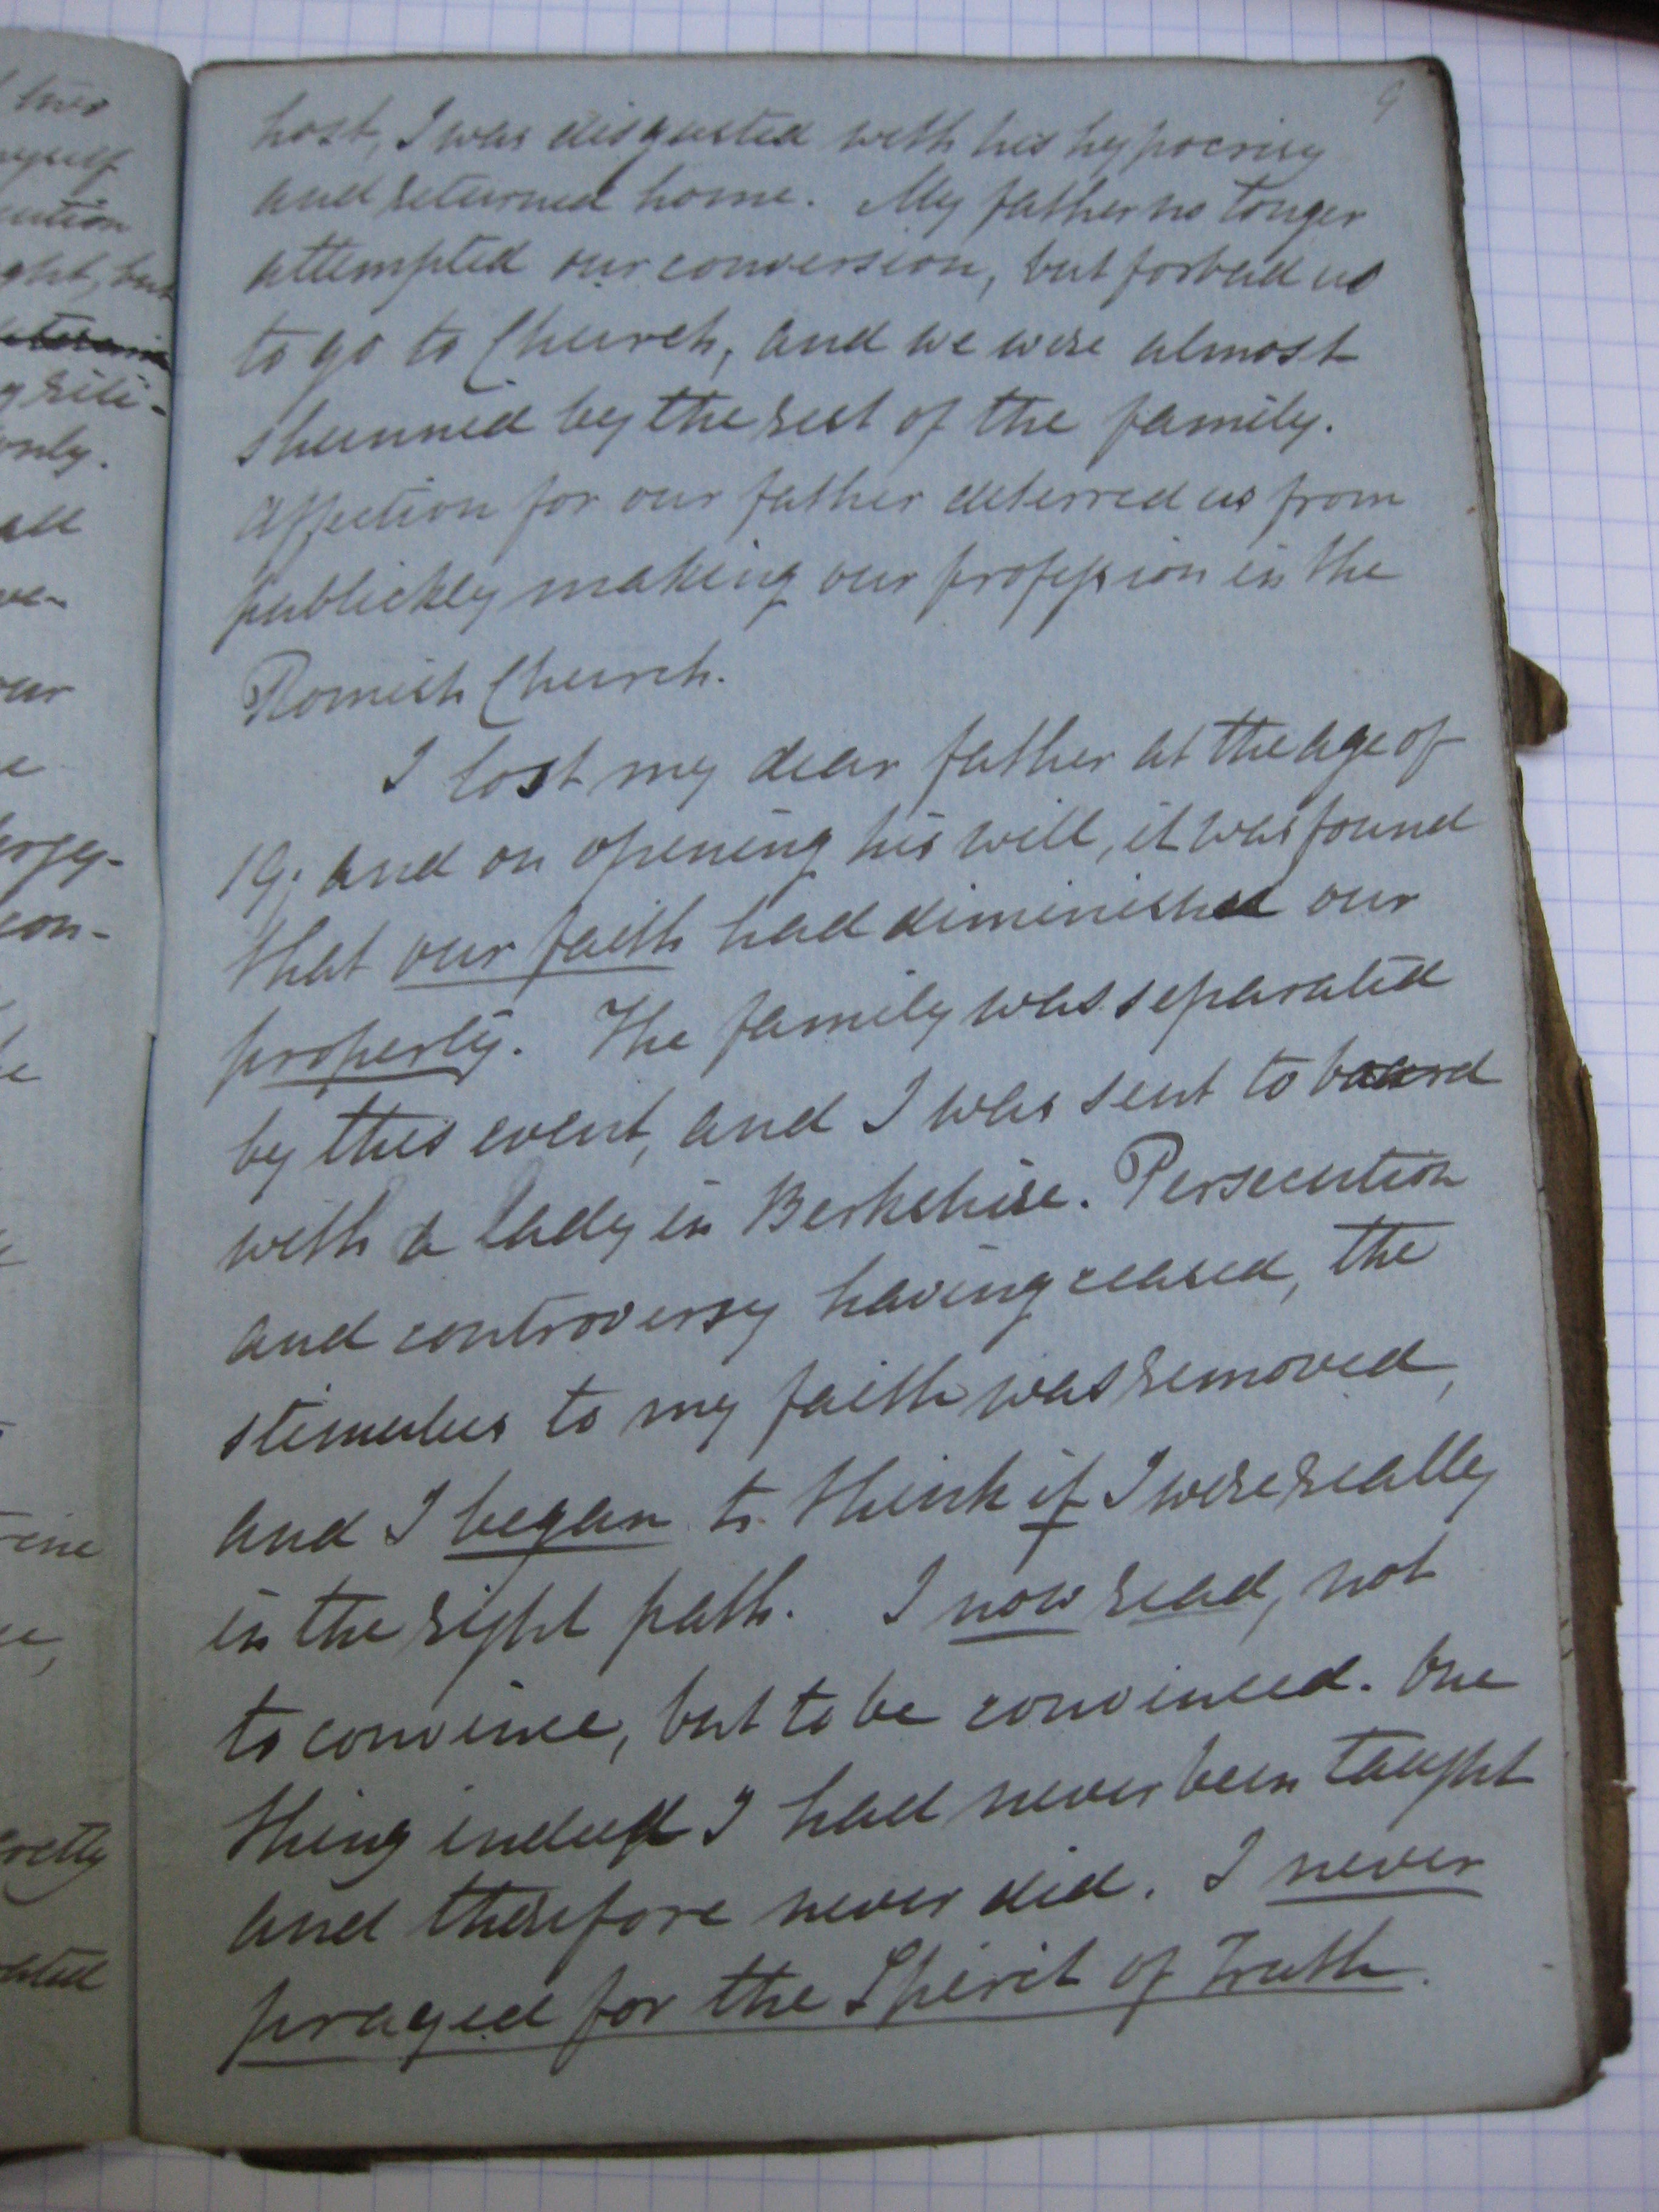 9
host, I was disgusted with his hypocrisy
and returned home. My father no longer
attempted our conversion, but forbad us
to go to Church, and we were almost
shunned by the rest of the family.
Affection for our father deterred us from
publickly making our profession in the
Romish Church.
I lost my dear father at the age of
19; and on opening his will, it was found
that our faith had diminished our
property. The family was separated
by this event, and I was sent to board
with a lady in Berkshire. Persecution
and controversy having ceased, the
stimulus to my faith was removed,
and I began to think if I were really
in the right path. I now read, not
to convince, but to be convinced. One
thing indeed I had never been taught
and therefore never did. I never
prayed for the Spirit of Truth.